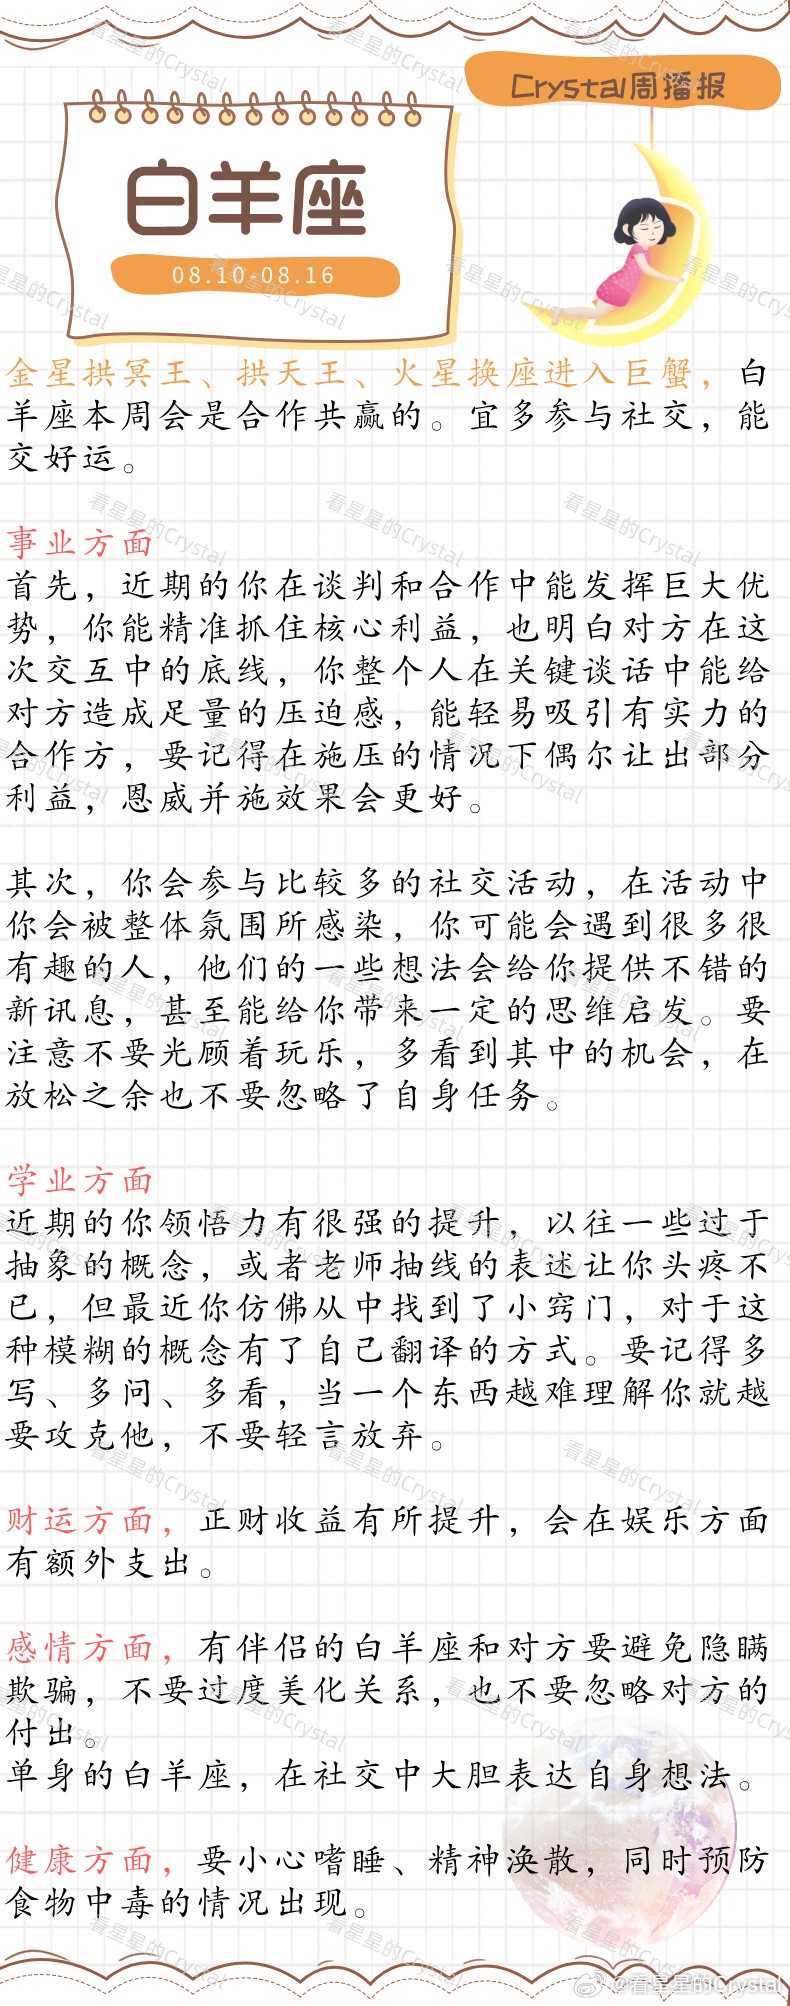 Crystal周播报
白羊座
08.10-08.16
金星拱冥王、拱天王、火星换座进入巨蟹，白
羊座本周会是合作共赢的。宜多参与社交，能
交好运。
事业方面
首先，近期的你在谈判和合作中能发挥巨大优
势，你能精准抓住核心利益，也明白对方在这
次交互中的底线，你整个人在关键谈话中能给
对方造成足量的压迫感，能轻易吸引有实力的
合作方，要记得在施压的情况下偶尔让出部分
利益，恩威并施效果会更好。
其次，你会参与比较多的社交活动，在活动中
你会被整体氛围所感染，你可能会遇到很多很
有趣的人，他们的一些想法会给你提供不错的
新讯息，甚至能给你带来一定的思维启发。要
注意不要光顾着玩乐，多看到其中的机会，在
放松之余也不要忽略了自身任务。
学业方面
近期的你领悟力有很强的提升，以往一些过于
抽象的概念，或者老师抽线的表述让你头疼不
已，但最近你仿佛从中找到了小窍门，对于这
种模糊的概念有了自己翻译的方式。要记得多
写、多问、多看，当一个东西越难理解你就越
要攻克他，不要轻言放弃。
财运方面，正财收益有所提升，会在娱乐方面
有额外支出。
感情方面，有伴侣的白羊座和对方要避免隐瞒
欺骗，不要过度美化关系，也不要忽略对方的
付出。
单身的白羊座，在社交中大胆表达自身想法。
健康方面，要小心嗜睡、精神涣散，同时预防
食物中毒的情况出现。
@看星星的Crystal